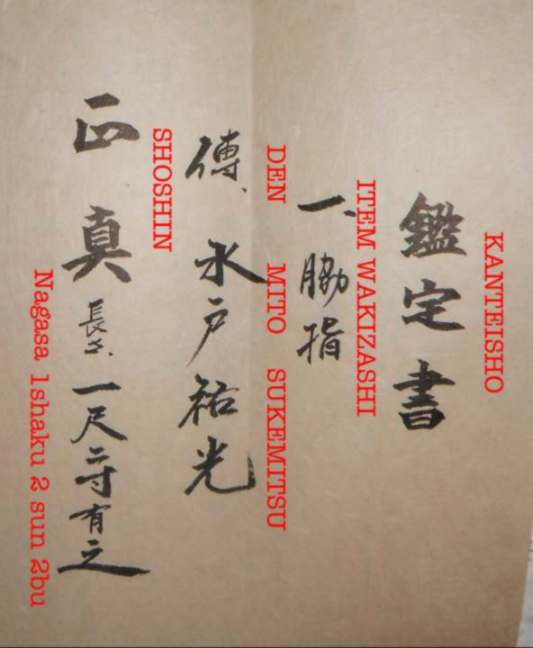 KANTEISHO
鑑定書
ITEM WAKIZASHI
一、脇指
DEN MITO SUKEMITSU
傳、水戸祐光
SHOSHIN
正真 長さ、一尺二寸有之
Nagasa 1shaku 2 sun 2bu